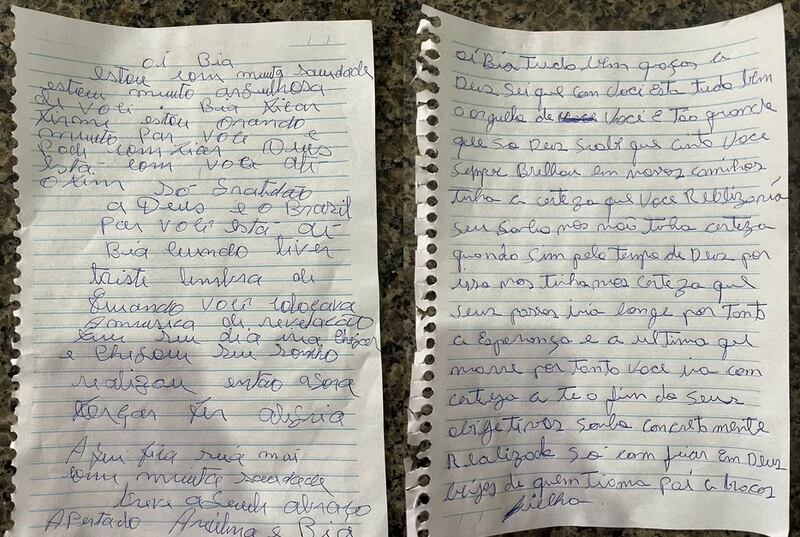 oi Bia
estou com muita saudade
estou muito orgulhosa
di voci Bia ficar
firmi estou orando
muinto par voce e
Podi com ficar Deus
está com voci ati
o fim só gratidao
a Deus e o Brazil
Par voci está ai
Bia cuando tiver
triste limbra di
Quando voci colocava
a musica di revelação
qui seu dia iria chegar
e chegou seu sonho
realizou então agora
força fer alegria
Aqui fica sua mai
com muinta saudade
Apertado e Bia
oi Bia Tudo bem graças a
Deus Sei que com voci Esta tudo bem
o orgulho de voce Voci E Tão grande
que So Deus Sabe que cinto Voce
Sepper Brilhou em novos caminhos
tinha a certeza que Voce Reblizaria
seu Sonho nos não tinha certeza
quando Sim pelo tempo de Deus por
issa nos tinhamos certeza que
seus passos iria longe por Tonto
a Esperança e a ultima que
morre por tonto Voce ira com
certeza a te o fim do Seus
obijetivos Sonho concretmente
Realizado Só com fiar Em Deus
beijos de quem ti ama Pai a brocos
filha.